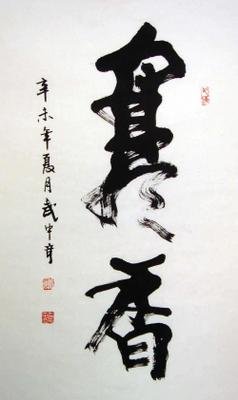 寒香
辛未年夏月武中奇